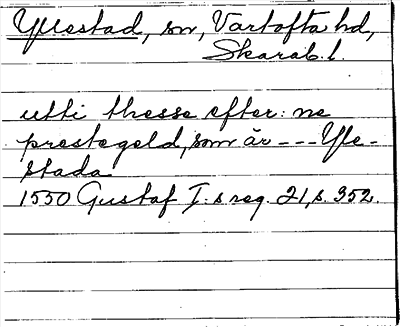 Yllestad, sn, Vartofta hd,
Skarab. l.
utti thesse efter: ne
prestegeld, som är --- Yle-
stada
1550 Gustaf I:s reg. 21, s. 352.